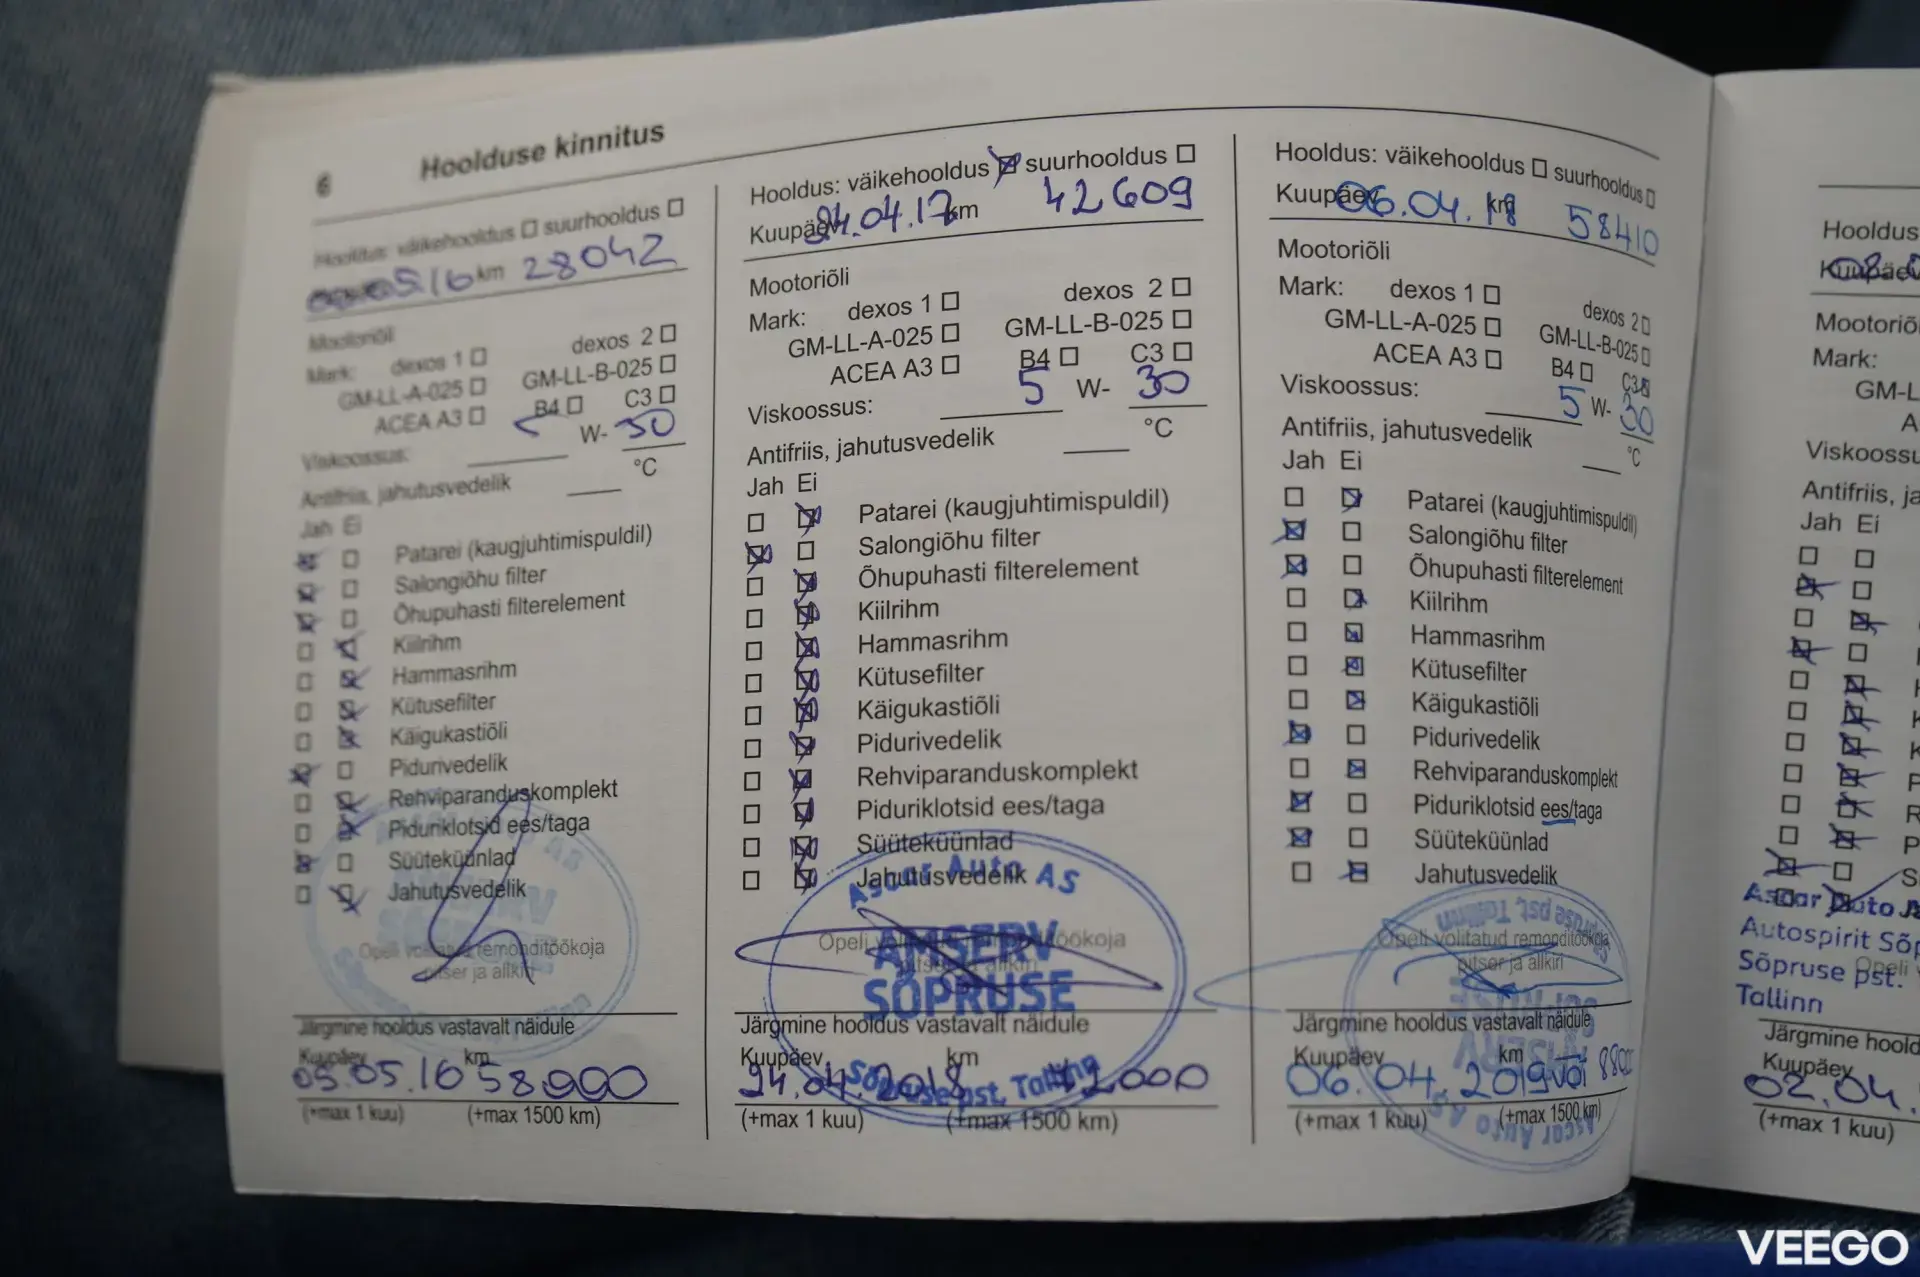 6
Hoolduse kinnitus
Hooldus: väikehooldus suurhooldus
05.16 km 28042
Mootoriõli
dexos 2
Mark: dexos 1
GM-LL-B-025
GM-LL-A-025
B4 C3
ACEA A3
Viskoossus: 5 W- 30
Antifriis, jahutusvedelik °C
Jah Ei
Patarei (kaugjuhtimispuldil)
Salongiõhu filter
Õhupuhasti filterelement
Kiilrihm
Hammasrihm
Kütusefilter
Käigukastiõli
Pidurivedelik
Rehviparanduskomplekt
Piduriklotsid ees/taga
Süüteküünlad
Jahutusvedelik
Opeli volitatud remonditöökoja
pitser ja allkiri
Järgmine hooldus vastavalt näidule
Kuupäev km
05.05.16 58000
(+max 1 kuu) (+max 1500 km)
Hooldus: väikehooldus suurhooldus
Kuupäev 24.04.17 km 42609
Mootoriõli
Mark: dexos 1 dexos 2
GM-LL-A-025 GM-LL-B-025
ACEA A3 B4 C3
Viskoossus: 5 W- 30
Antifriis, jahutusvedelik °C
Jah Ei
Patarei (kaugjuhtimispuldil)
Salongiõhu filter
Õhupuhasti filterelement
Kiilrihm
Hammasrihm
Kütusefilter
Käigukastiõli
Pidurivedelik
Rehviparanduskomplekt
Piduriklotsid ees/taga
Süüteküünlad
Jahutusvedelik
Ascar Auto AS
Opeli volitatud remonditöökoja
pitser ja allkiri
AMSERV
SÕPRUSE
Sõpruse pst, Tallinn
Järgmine hooldus vastavalt näidule
Kuupäev km
24.04.2018
(+max 1 kuu) (+max 1500 km)
Hooldus: väikehooldus suurhooldus
Kuupäev 06.04.18 km 58410
Mootoriõli
Mark: dexos 1 dexos 2
GM-LL-A-025 GM-LL-B-025
ACEA A3 B4 C3
Viskoossus: 5 W- 30
Antifriis, jahutusvedelik °C
Jah Ei
Patarei (kaugjuhtimispuldil)
Salongiõhu filter
Õhupuhasti filterelement
Kiilrihm
Hammasrihm
Kütusefilter
Käigukastiõli
Pidurivedelik
Rehviparanduskomplekt
Piduriklotsid ees/taga
Süüteküünlad
Jahutusvedelik
Sõpruse pst, Tallinn
Opeli volitatud remonditöökoja
pitser ja allkiri
SÕPRUSE
AMSERV
Ascar Auto AS
Järgmine hooldus vastavalt näidule
Kuupäev km
06.04.2019 või
(+max 1 kuu) (+max 1500 km)
Hooldus
Kuupäev 08.
Mootoriõli
Mark:
GM-L
Viskoossu
Antifriis, ja
Jah Ei
Ascar Auto
Autospirit Sõp
Sõpruse pst.
Opeli
Tallinn
Järgmine hoold
Kuupäev
02.04.
(+max 1 kuu)
VEEGO